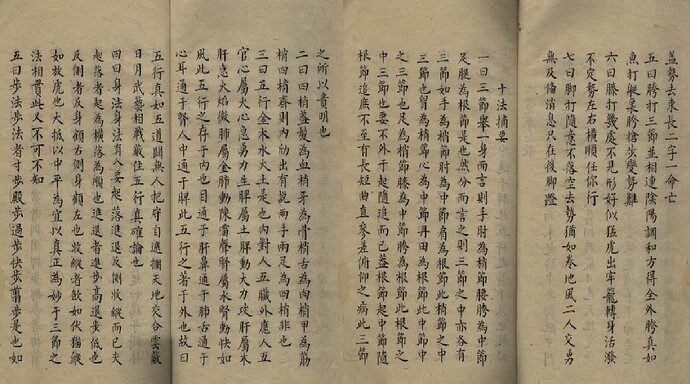 蓋勢去來長二字一命亡
五曰胯打三節並相連陰陽調和方得全外胯真如
魚打艇裹胯搶步變勢難
六曰膝打幾處不見形好似猛虎出牢籠轉身活潑
不定勢左右橫順任你行
七曰脚打隨意不落空去勢猶如卷地風二人交勇
無及倫消息只在後脚蹬
十法摘要
一曰三節舉一身而言則手肘為梢節腰胯為中節
足腿為根節是也然分而言之則三節之中亦各有
三節也手為梢節肘為中節肩為根節此梢節之中
三節也胷為梢節心為中節丹田為根節此中節
之三節也足為梢節膝為中節胯為根節此根節之
中三節也要不外于起隨追而已蓋梢節起中節隨
根節追庶不至有長短曲直參差俯仰之病此三節
之所以貴明也
二曰四梢蓋髮為血梢牙為骨梢舌為肉梢甲為筋
梢四梢齊則內勁出有說兩手兩足為四梢非也
三曰五行金木水火土是也內對人五臟外應人五
官心屬火心急勇力生脾屬土脾動大力攻肝屬木
肝急火焰微肺屬金肺動陳雷聲腎屬水腎動快如
風此五行之存于內也目通于肝鼻通于肺舌通于
心耳通于腎人中通于脾此五行之著于外也故曰
五行真如五道關無人把守自遮攔天地交合雲蔽
日月武藝相戰蔽住五行真確論也
四曰身法身法有八要起落進退反側收縱而已夫
起落者起為橫落為順也進退者進步高退步低也
反側者反身顧右側身顧左也收縱者收如伏貓縱
如放虎也大抵以中平為宜以真正為妙于三節之
法相貫此又不可不知
五曰步法步法者寸步殿步過步快步剪步是也如